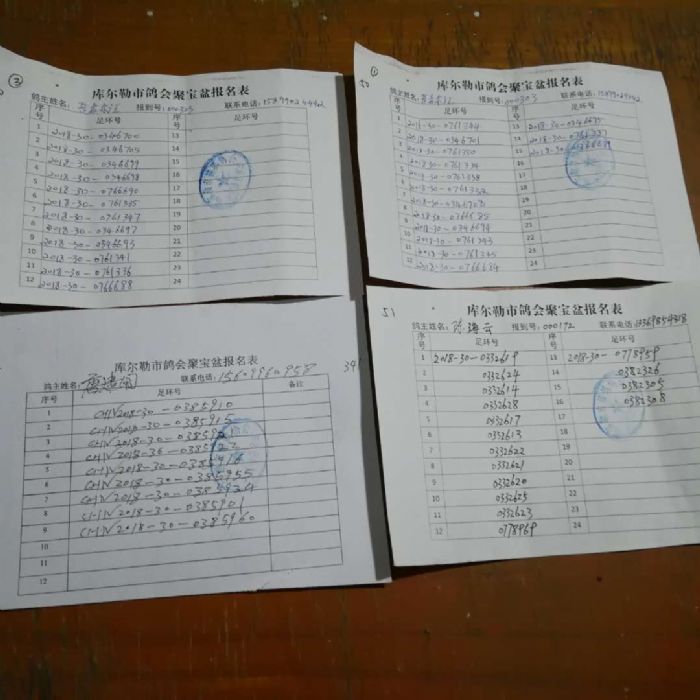 ②
库尔勒市鸽会聚宝盆报名表
鸽主姓名: 报到号:000303 联系电话:
序号 足环号 序号 足环号
1 2018-30-0346700 13
2 2018-30-0346705 14
3 2018-30-0346699 15
4 2018-30-0346698 16
5 2018-30-0766690 17
6 2018-30-0761335 18
7 2018-30-0761347 19
8 2018-30-0346697 20
9 2018-30-0346693 21
10 2018-30-0761341 22
11 2018-30-0761336 23
12 2018-30-0766688 24
①
50
库尔勒市鸽会聚宝盆报名表
鸽主姓名: 报到号:000303 联系电话:
序号 足环号 序号 足环号
1 2018-30-0761344 13 2018-30-0346695
2 2018-30-0346701 14 2018-30-0761337
3 2018-30-0761350 15 2018-30-0766689
4 2018-30-0761334 16
5 2018-30-0761338 17
6 2018-30-0761332 18
7 2018-30-0346703 19
8 2018-30-0766685 20
9 2018-30-0346694 21
10 2018-30-0761343 22
11 2018-30-0761345 23
12 2018-30-0766684 24
库尔勒市鸽会聚宝盆报名表
鸽主姓名: 联系电话:15609960958
序号 足环号 备注
1 CHN2018-30-0385910
2 CHN2018-30-0385915
3
4
5
6 CHN2018-30-0385955
7 CHN2018-30-0385924
8 CHN2018-30-0385901
9 CHN2018-30-0385960
10
11
12
51
库尔勒市鸽会聚宝盆报名表
鸽主姓名:陈海云 报到号:000192 联系电话:
序号 足环号 序号 足环号
1 2018-30-0332619 13 2018-30-0778959
2 0332624 14 0382326
3 0332614 15 0382305
4 0332628 16 0382308
5 0332617 17
6 0332613 18
7 0332622 19
8 0332621 20
9 0332620 21
10 0332625 22
11 0332623 23
12 0778969 24